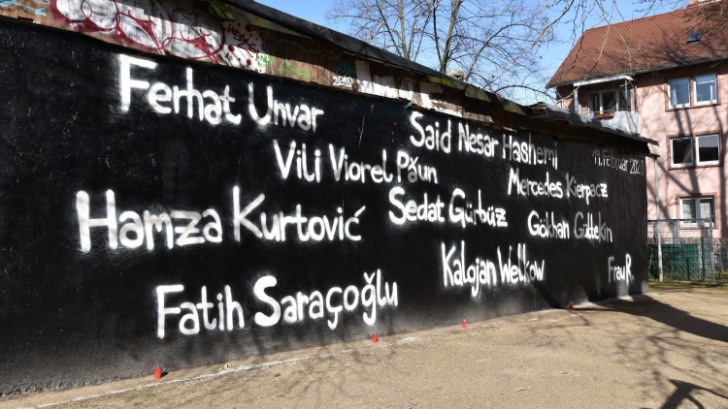 Ferhat Unvar
Said Nesar Hashemi
19. Februar 2021
Vili Viorel Păun
Mercedes Kierpacz
Hamza Kurtović
Sedat Gürbüz
Gökhan Gültekin
Kalojan Welkow
Frau R.
Fatih Saraçoğlu